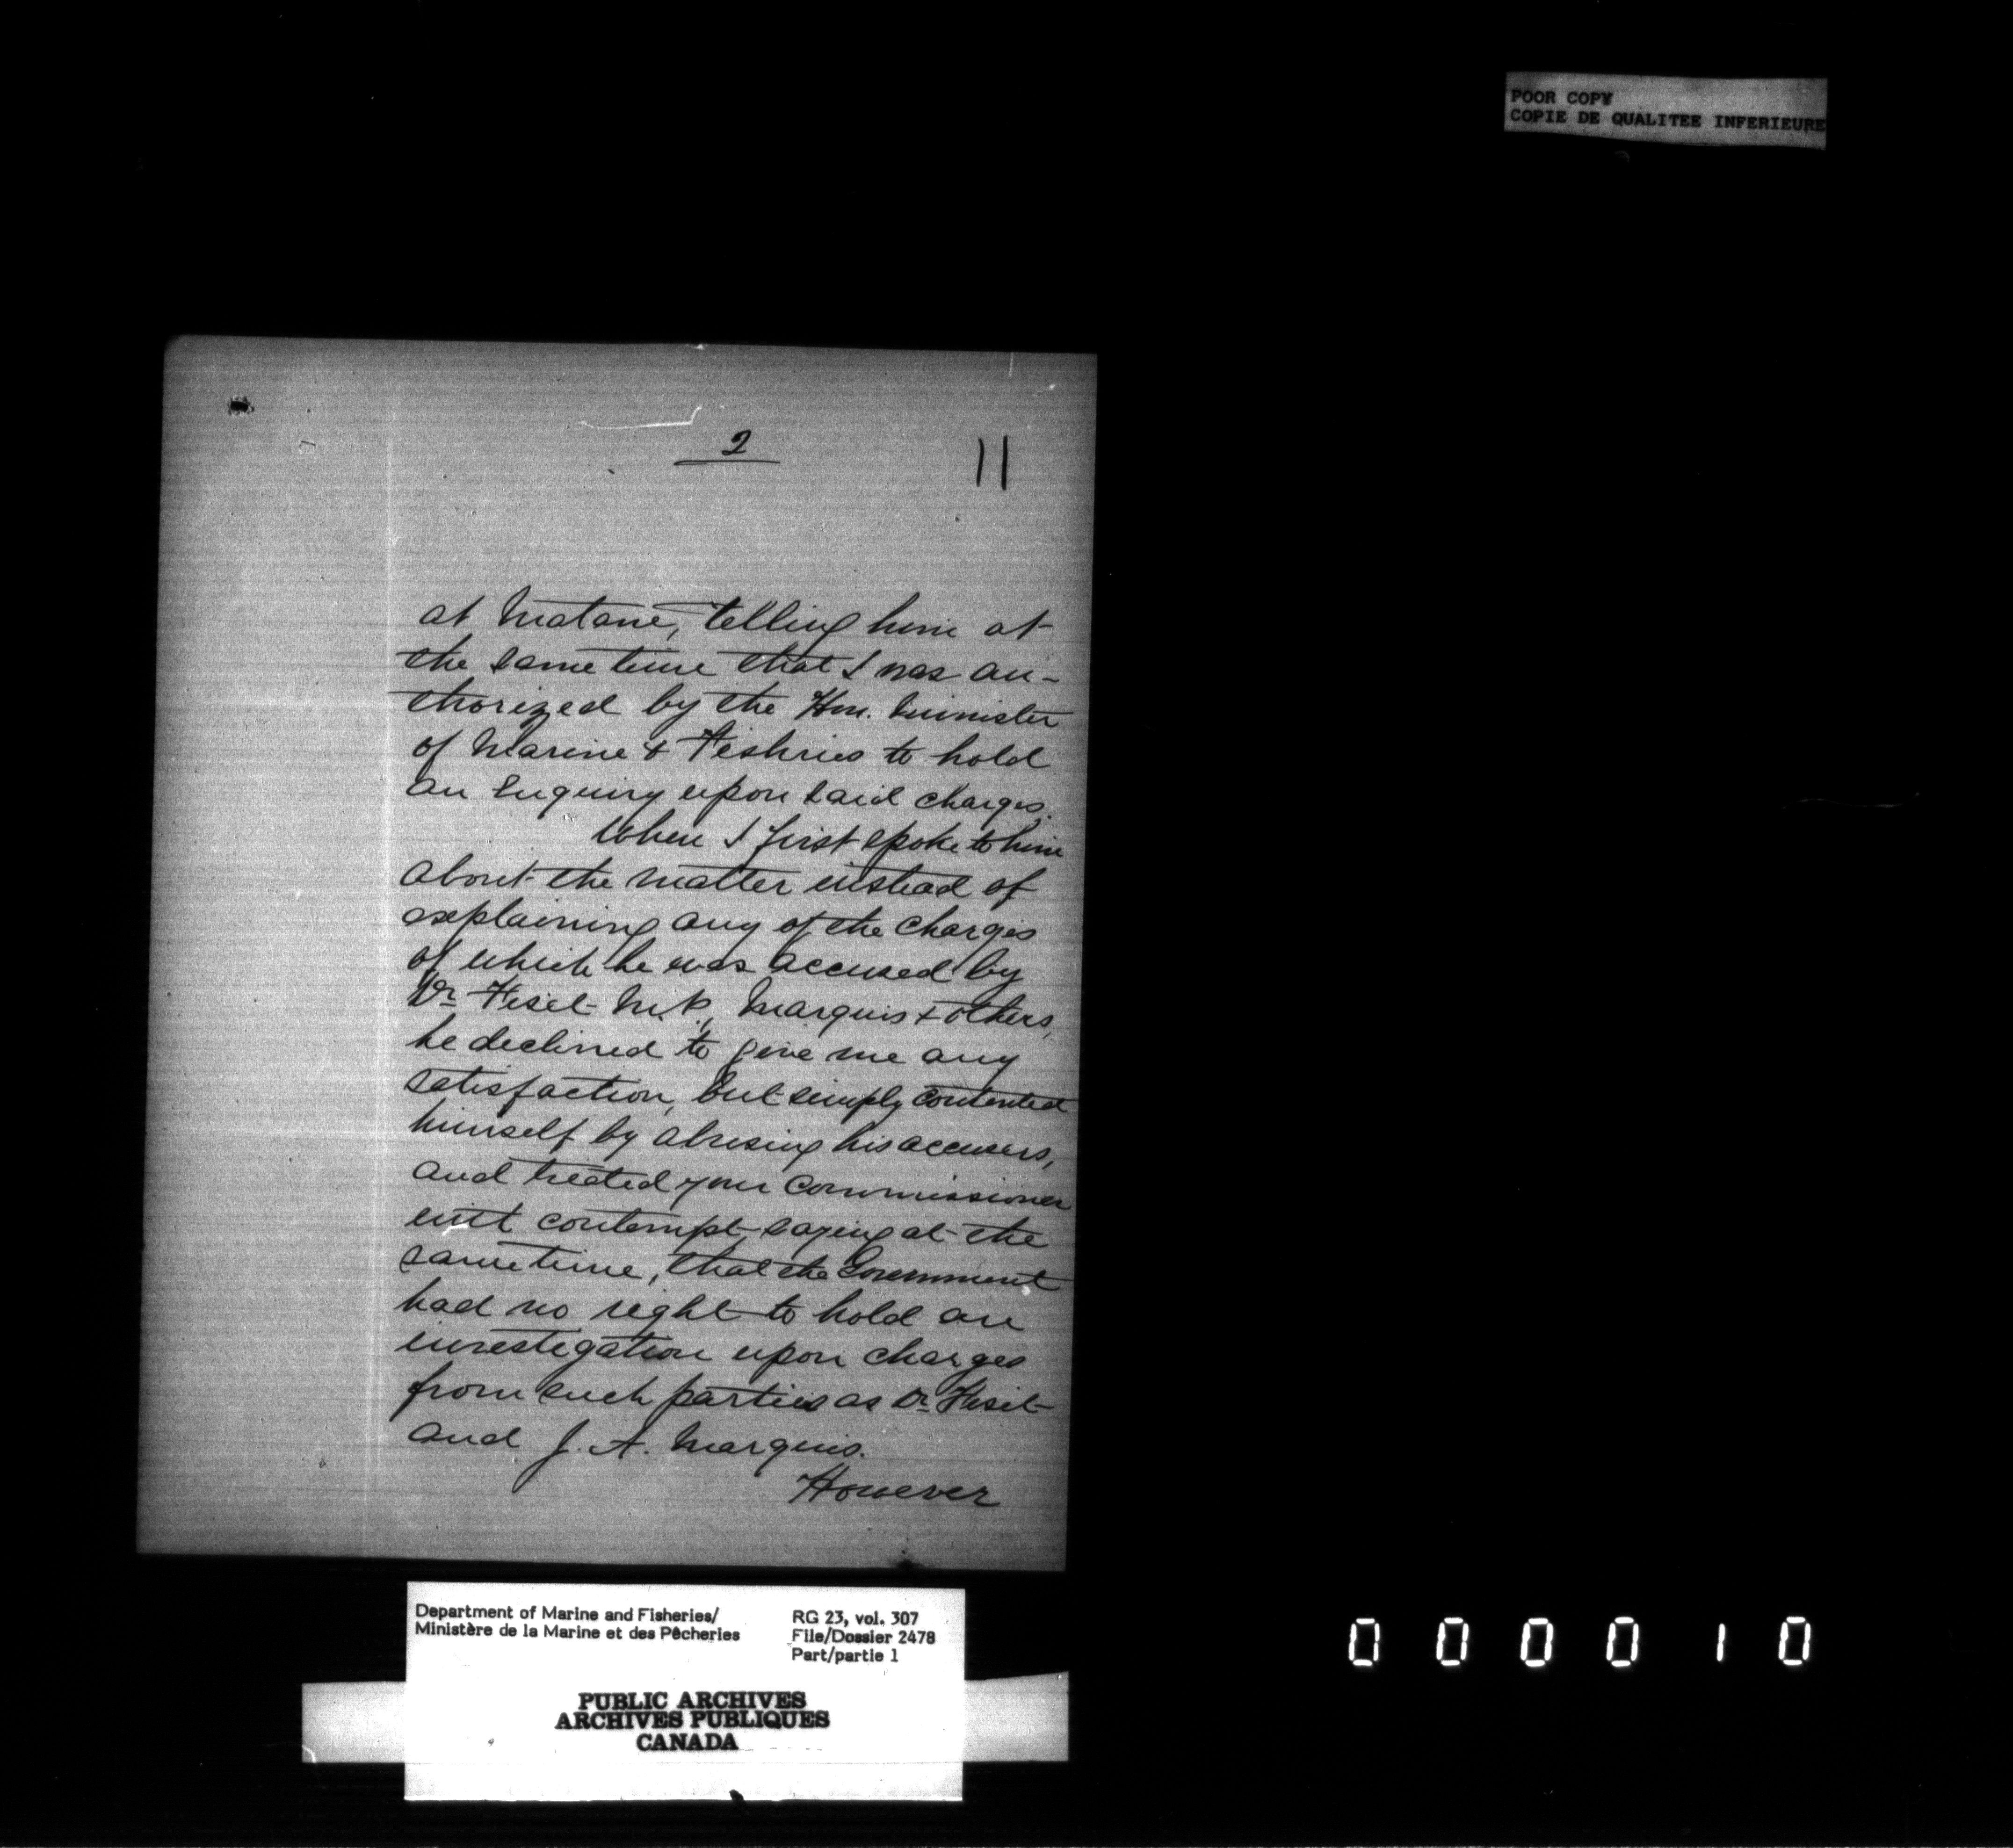 POOR COPY
COPIE DE QUALITEE INFERIEURE
2
11
at Matane, telling him at
the same time that I was au-
thorized by the Hon. Minister
of Marine & Fishries to hold
an Enquiry upon said charges.
When I first spoke to him
about the matter instead of
explaining any of the charges
of which he was accused by
Dr Fiset M.P., Marquis & others,
he declined to give me any
satisfaction, but simply contented
himself by abusing his accusers,
and treated your Commissioner
with contempt, saying at the
same time, that the Government
had no right to hold an
investigation upon charges
from such parties as Dr Fiset
and J. A. Marquis.
However
Department of Marine and Fisheries/
Ministère de la Marine et des Pêcheries
RG 23, vol. 307
File/Dossier 2478
Part/partie 1
PUBLIC ARCHIVES
ARCHIVES PUBLIQUES
CANADA
000010